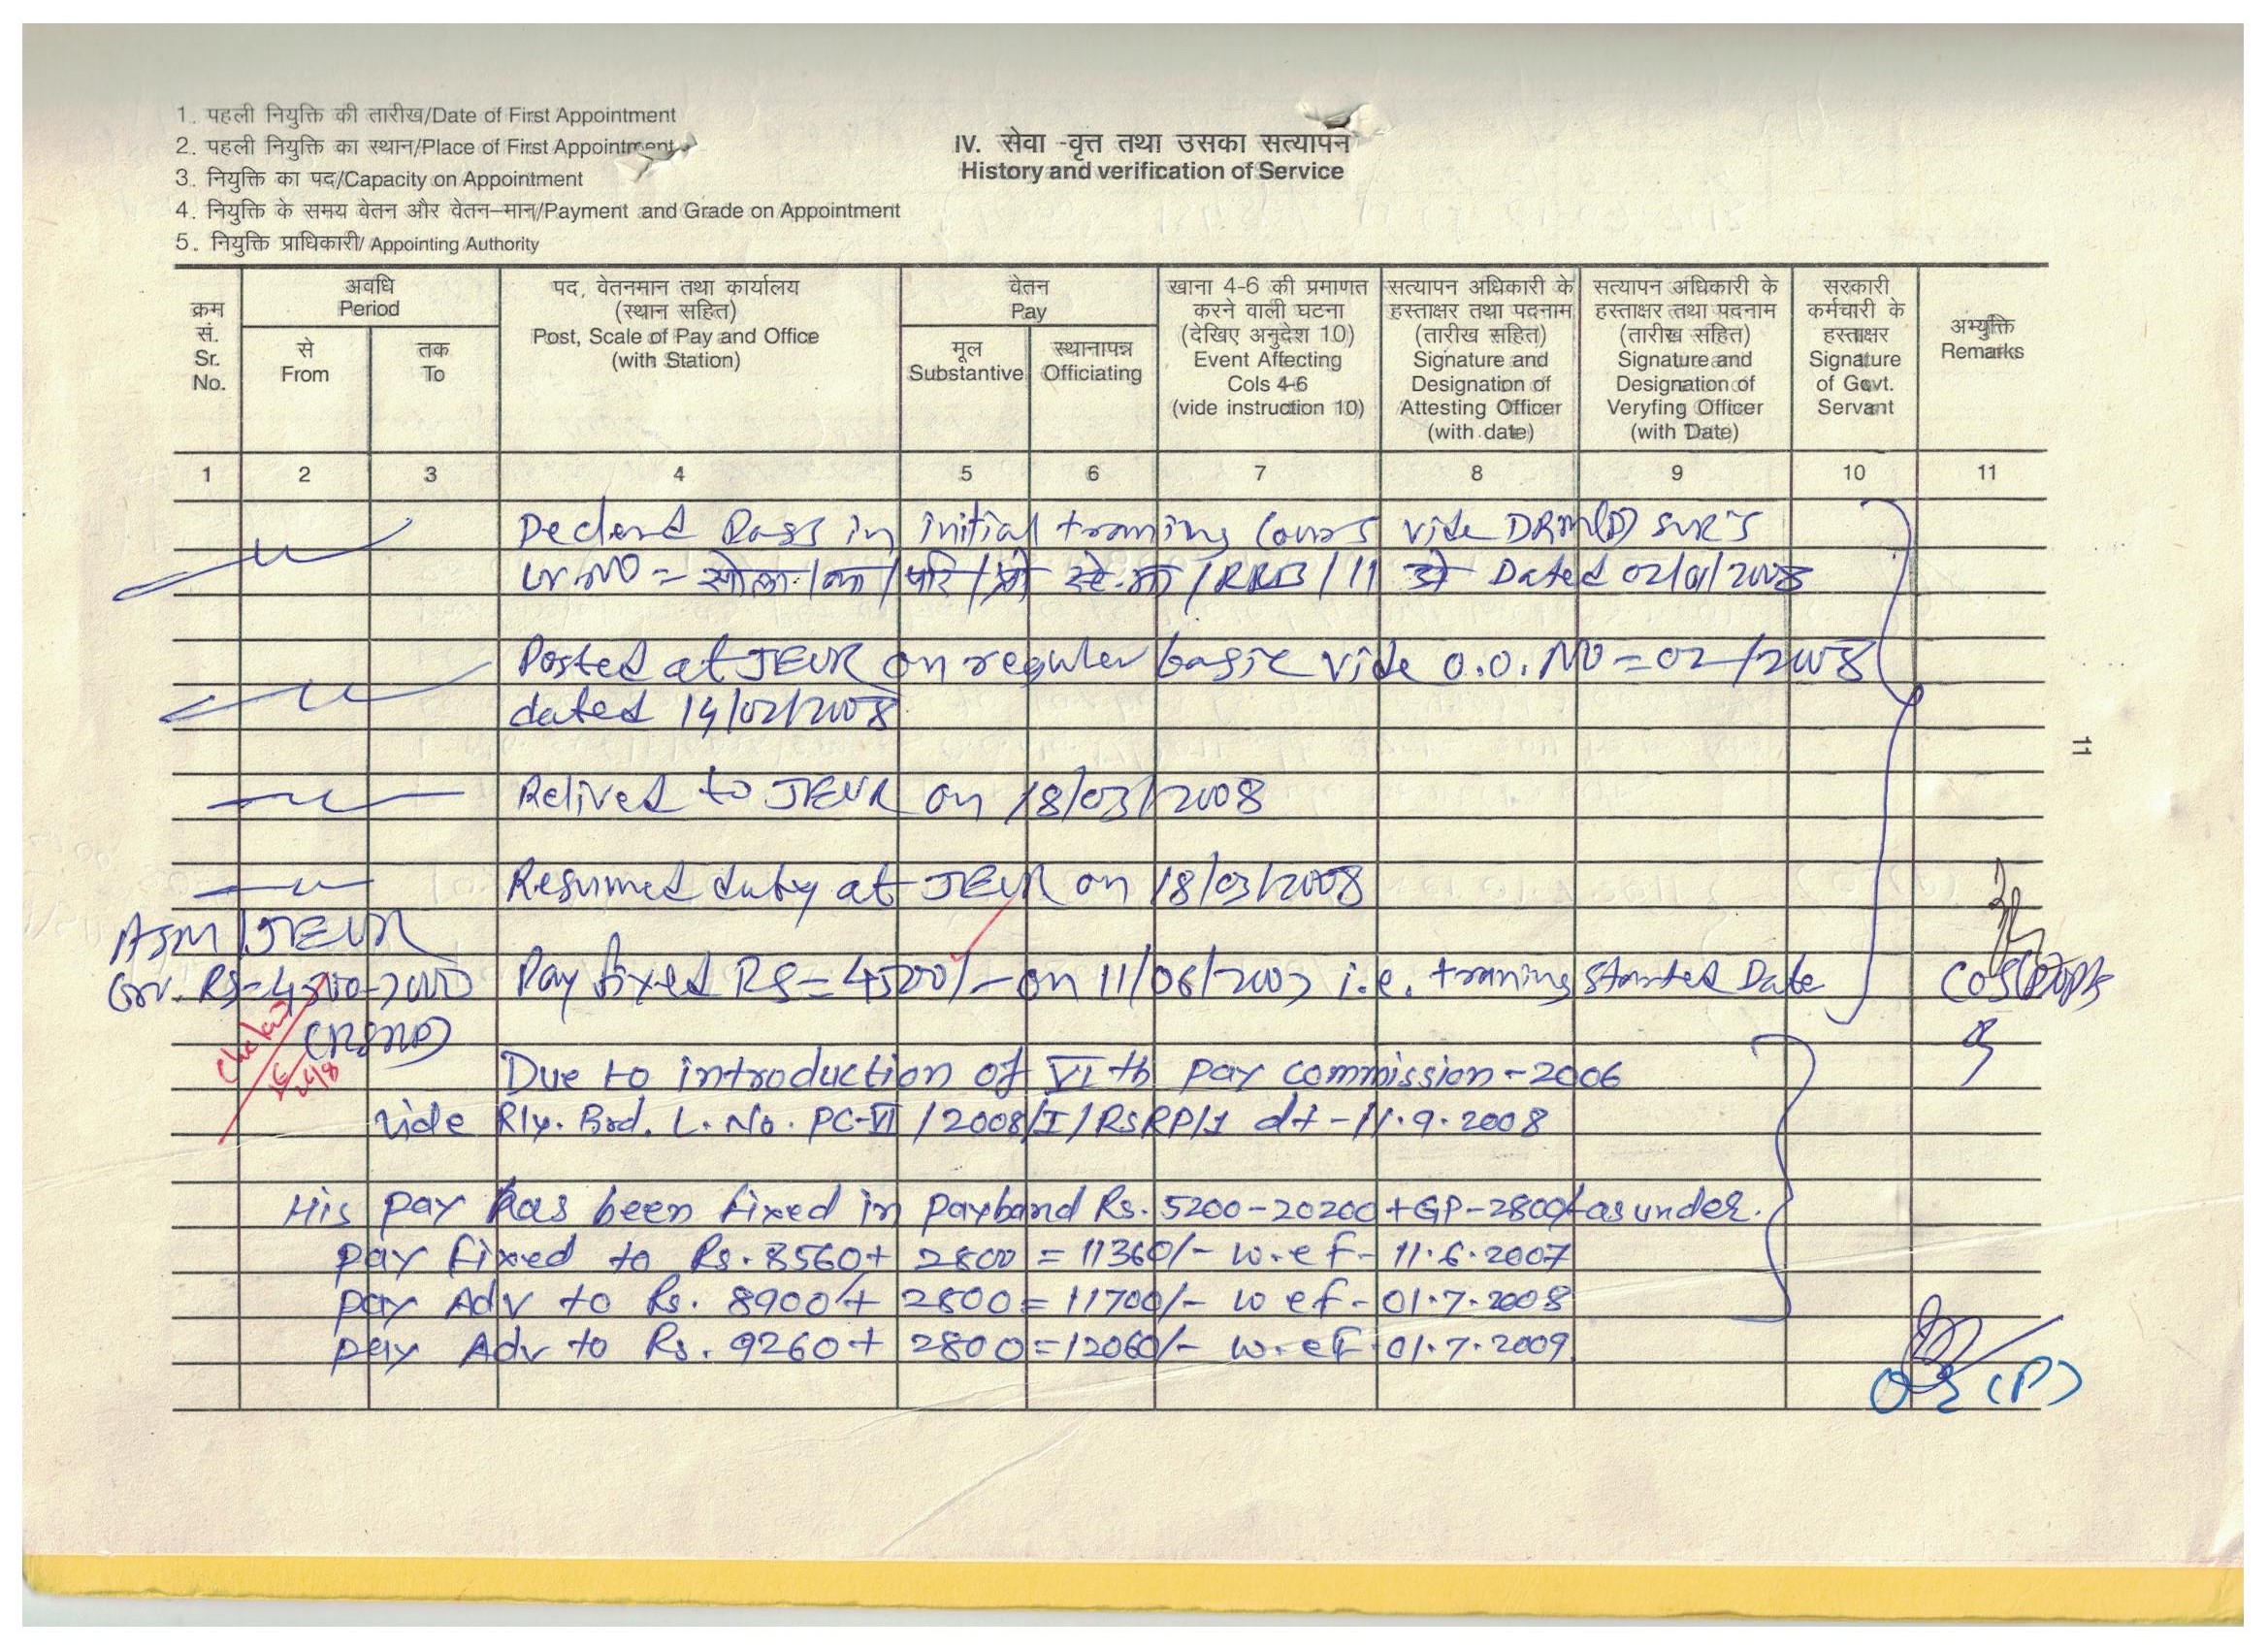 1. पहली नियुक्ति की तारीख/Date of First Appointment
2. पहली नियुक्ति का स्थान/Place of First Appointment
3. नियुक्ति का पद/Capacity on Appointment
4. नियुक्ति के समय वेतन और वेतन-मान/Payment and Grade on Appointment
5. नियुक्ति प्राधिकारी/ Appointing Authority
IV. सेवा -वृत्त तथा उसका सत्यापन
History and verification of Service
क्रम सं. Sr. No.
अवधि Period
से From
तक To
पद, वेतनमान तथा कार्यालय (स्थान सहित) Post, Scale of Pay and Office (with Station)
वेतन Pay
मूल Substantive
स्थानापन्न Officiating
खाना 4-6 की प्रमाणत करने वाली घटना (देखिए अनुदेश 10) Event Affecting Cols 4-6 (vide instruction 10)
सत्यापन अधिकारी के हस्ताक्षर तथा पदनाम (तारीख सहित) Signature and Designation of Attesting Officer (with date)
सत्यापन अधिकारी के हस्ताक्षर तथा पदनाम (तारीख सहित) Signature and Designation of Veryfing Officer (with Date)
सरकारी कर्मचारी के हस्ताक्षर Signature of Govt. Servant
अभ्युक्ति Remarks
1 2 3 4 5 6 7 8 9 10 11
Declerd Pass in initial traning Cours vide DRM(P) SUR'S
Lr.NO = /RRB/11 Dated 02/01/2008
Posted at JEUR on reguler basic vide O.O. NO = 02/2008
dated 14/02/2008
11
Relived to JEUR on 18/03/2008
Resumed duty at JEUR on 18/03/2008
ASM/JEUR
Grv. Rs=4500-7000 Pay fixed RS=4500/- on 11/06/2007 i.e. traning Started Date
(RSRP)
Due to introduction of VIth pay commission-2006
vide Rly. Brd. L. No. PC-VI /2008/I/RSRP/1 dt-11.9.2008
His pay has been fixed in payband Rs. 5200-20200+GP-2800/- as under.
pay fixed to Rs. 8560+ 2800 = 11360/- w.ef- 11.6.2007
pay Adv to Rs. 8900/+ 2800= 11700/- w ef-01.7.2008
pay Adv to Rs. 9260+ 2800=12060/- w.ef 01.7.2009
OS(P)